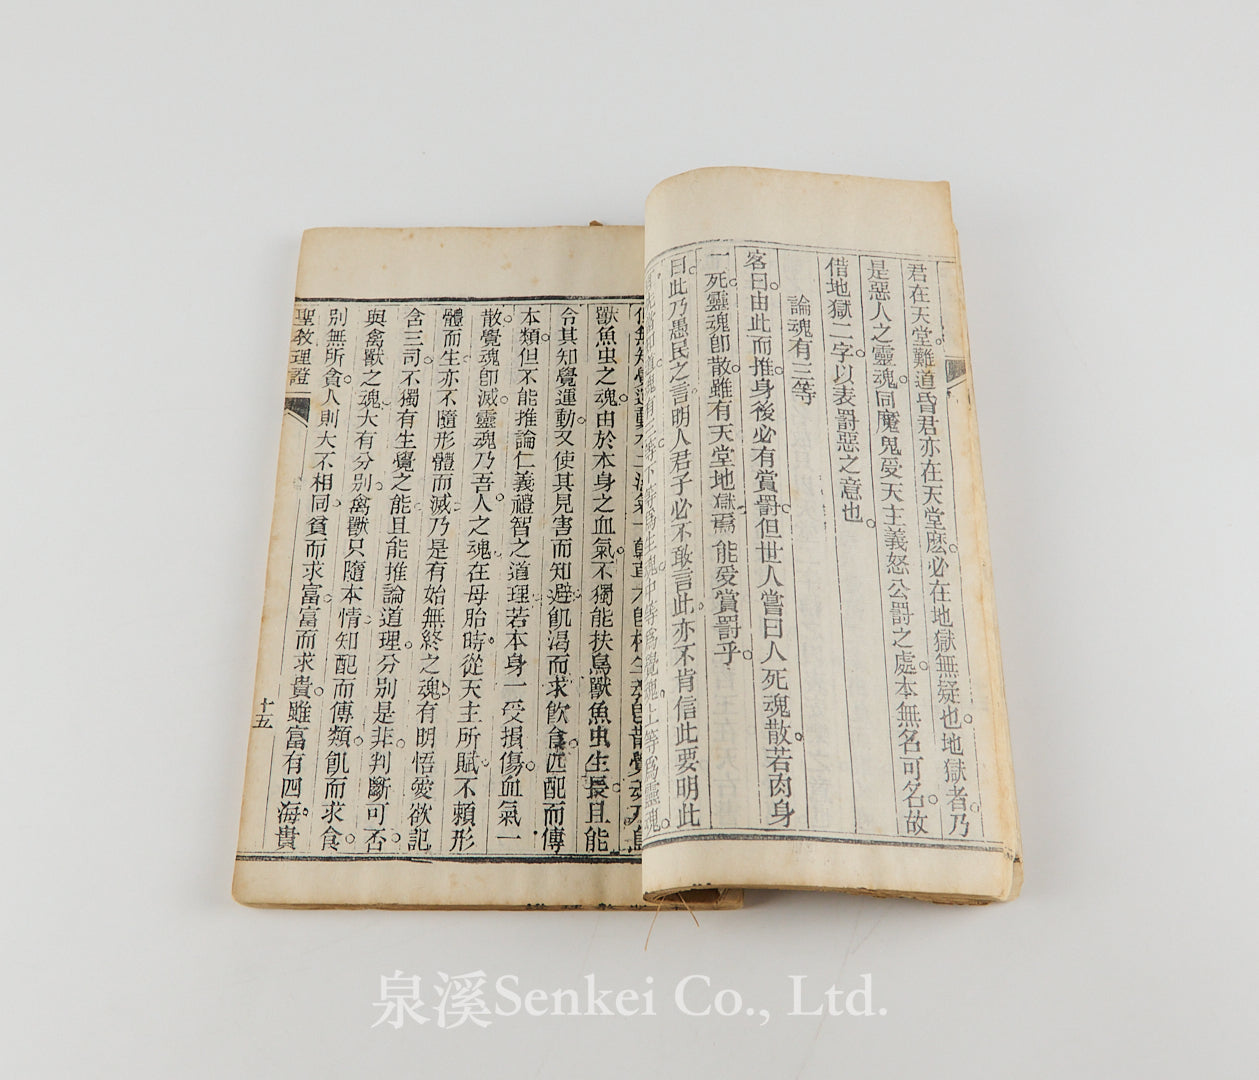 君在天堂難道昏君亦在天堂麽必在地獄無疑也地獄者乃
是惡人之靈魂同魔鬼受天主義怒公罰之處本無名可名故
借地獄二字以表罰惡之意也
論魂有三等
客曰由此而推身後必有賞罰但世人嘗曰人死魂散若肉身
一死靈魂卽散雖有天堂地獄焉能受賞罰乎
曰此乃愚民之言明人君子必不敢言此亦不肯信此要明此
等爲生魂中等爲覺魂上等爲靈魂
獸魚虫之魂由於本身之血氣不獨能扶鳥獸魚虫生長且能
令其知覺運動又使其見害而知避飢渴而求飮食匹配而傳
本類但不能推論仁義禮智之道理若本身一受損傷血氣一
散覺魂卽滅靈魂乃吾人之魂在母胎時從天主所賦不賴形
體而生亦不隨形體而滅乃是有始無終之魂有明悟愛欲記
含三司不獨有生覺之能且能推論道理分別是非判斷可否
與禽獸之魂大有分別禽獸只隨本情知配而傳類飢而求食
別無所貪人則大不相同貧而求富富而求貴雖富有四海貴
聖敎理證
十五
泉溪Senkei Co., Ltd.